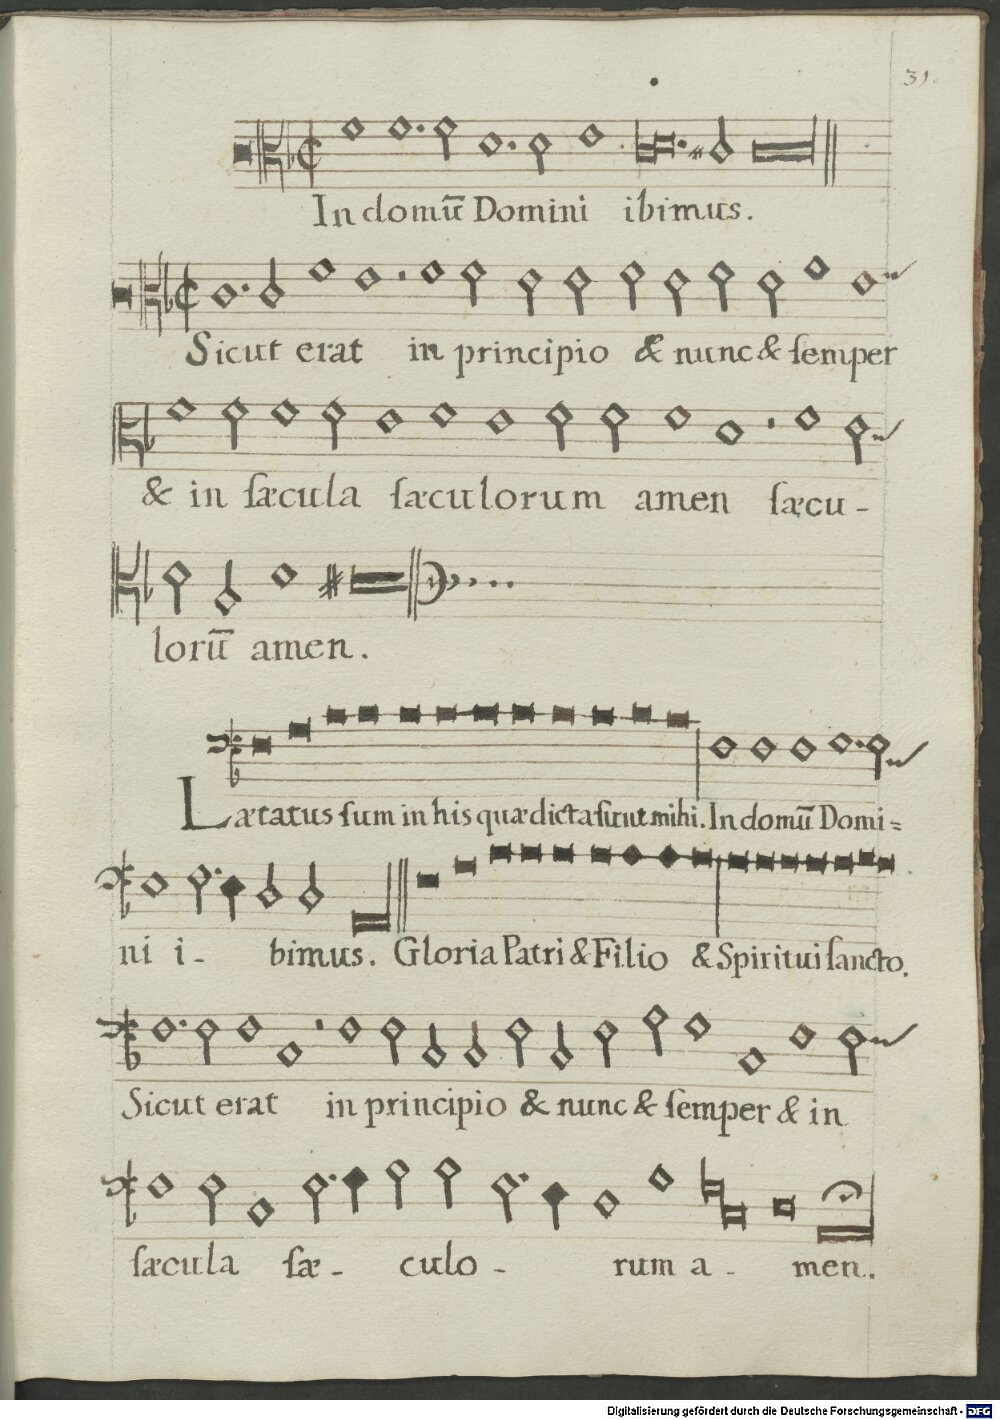 31.
In domū Domini ibimus.
Sicut erat in principio & nunc & ſemper
& in ſæcula ſæculorum amen ſæcu-
lorū amen.
Lætatus ſum in his quæ dicta ſunt mihi. In domū Domi=
ni i- bimus. Gloria Patri & Filio & Spiritui ſancto.
Sicut erat in principio & nunc & ſemper & in
ſæcula ſæ- culo- rum a- men.
Digitalisierung gefördert durch die Deutsche Forschungsgemeinschaft - DFG